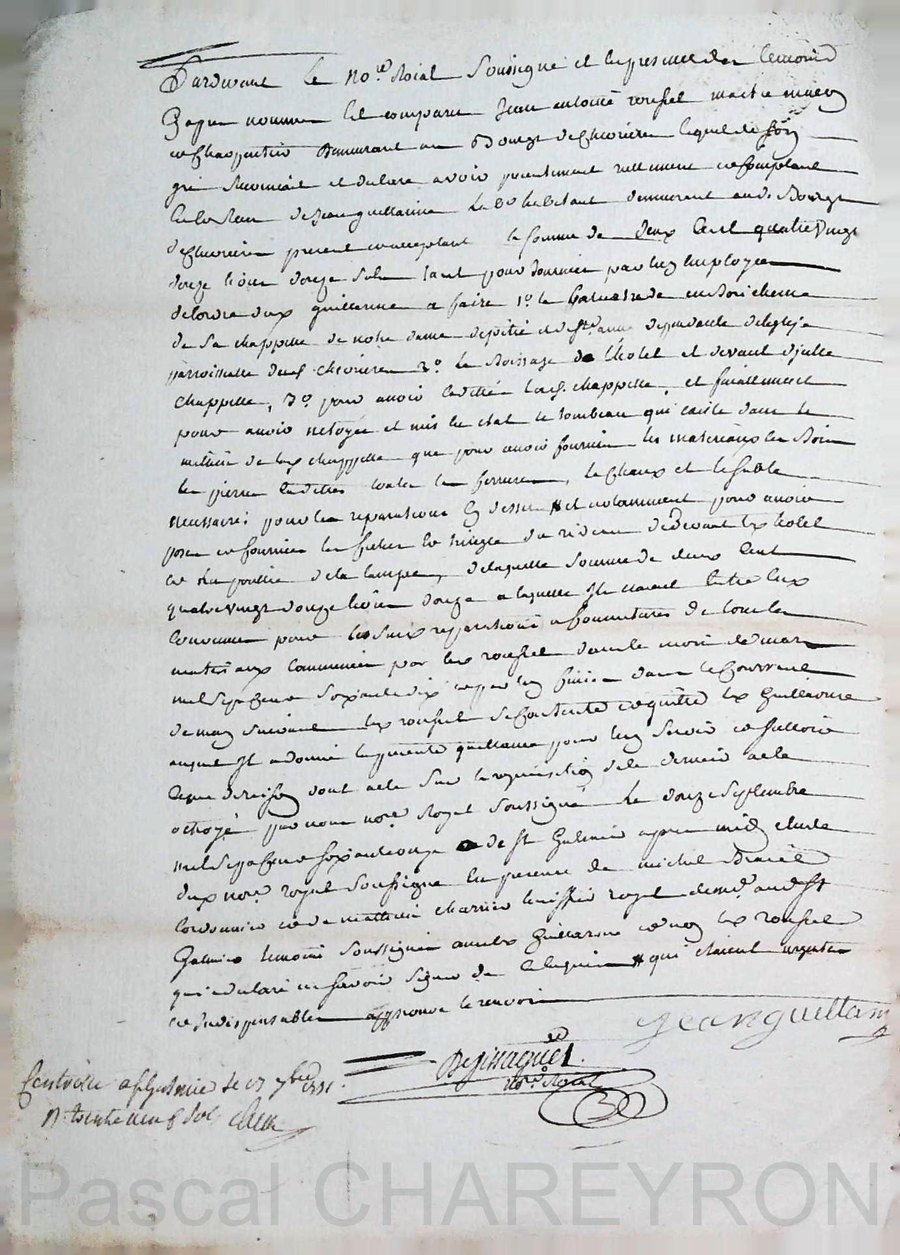 Pardevant le No.re Roial Soussigné et en presence des temoins
Bapres nommes Est comparu Jean antoine roussel maitre
et charpentier demeurant au Bourg de chevrieres lequel de son
gré reconnait et declare avoir presentement reellement et comptant
de Jean guillarme demeurant au d. Bourg
de chevrieres present et acceptant la somme de deux Cent quatre Vingt
douze livres douze sols tant pour par luy Employées
de lordre dud. guillarme a faire 1.o la Balustrade
de la chappelle de notre dame depitié et de Ste anne dependante deleglise
parroissialle dud. chevrieres 2.o la Boissage de lhotel et devant djcelle
chappelle, 3.o pour avoir lad. chappelle, et finallement
pour avoir netoyée et mis en etat le tombeau qui Existe dans le
millieu de lad. chappelle que pour avoir fourni les materiaux En Bois
en pierre toutes les ferrures, la chaux et le sable
necessaires pour les reparations Cy dessus # et notamment pour avoir
posé et fourni la tringle du rideau dudevant dud. hotel
et la poullie de la lampe, delaquelle somme de deux Cent
quatre vingt douze livres douze a laquelle Il avait Entre Eux
Convenus pour les susd. repparations et fournitures de tous les
materiaux Commencées par led. roussel dans le mois de mars
mil sept Cent soixante dix et par luy finies dans le Courrant
de may suivant led. roussel se Contente et quitte led. Guillarme
auquel Il a donné la presente quittance pour luy Servir et valloir
Ce que de raison dont acte sur la requisition acte
octroyé par nous no.re Royal Soussigné Le douze Septembre
mil Sept Cent soixante onze a de St Galmier apres midy Etude
dud. no.re royal Soussigné En presence de michel
Cordonnier et de mathieu charvier huissier royal demt. aud. St
Galmier temoins Soussignés avec led. Guillarme et non led. roussel
qui a declaré ne Savoir Signer de Ce Enquis # qui etaient urgentes
et Indispensables approuvé le renvoi
Jean guillarm
no.re Roial
Controllé a St Galmier le 17 7bre 1771.
R. trente neuf Sols
Pascal CHAREYRON